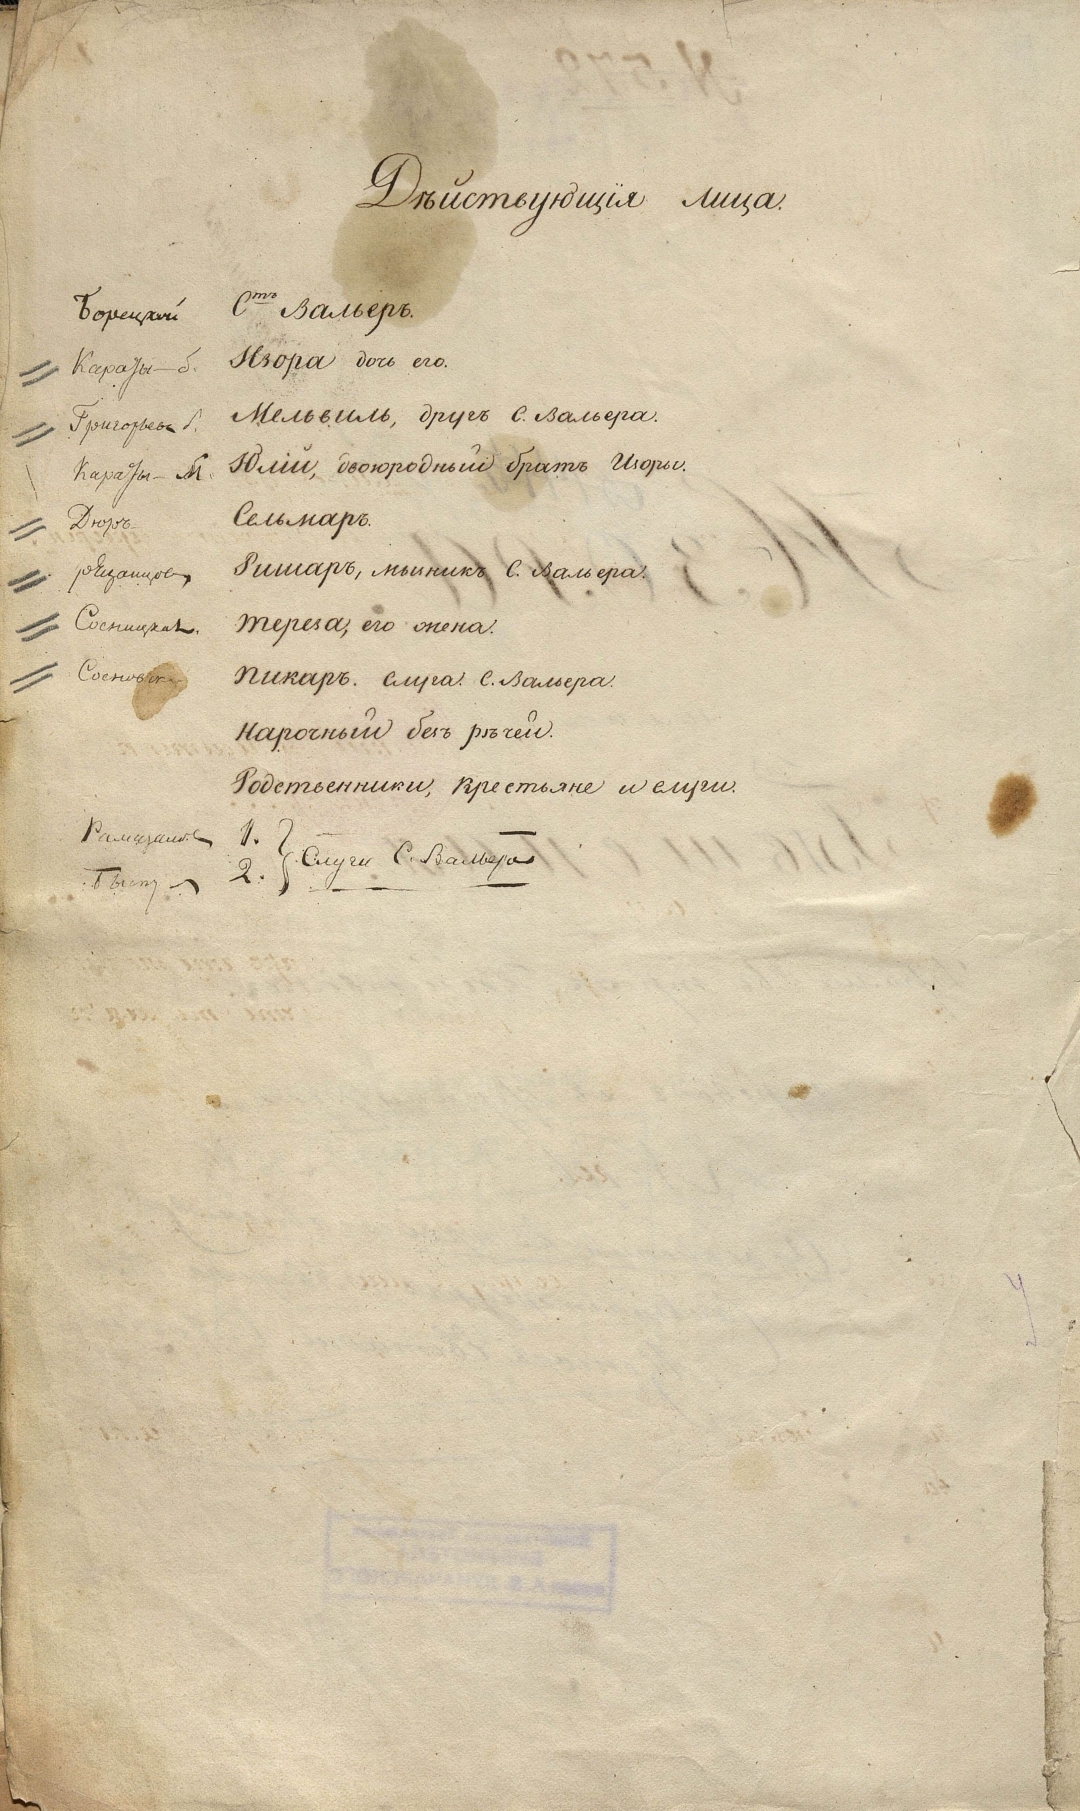 Дѣйствующія лица.
Борецкой Стъ Вальеръ.
Изора дочь его.
Григорьевъ б. Мельвиль, другъ С. Вальера.
Юлій, двоюродный братъ Изоры.
Дюръ Сельмаръ.
Рязанцовъ Ришаръ, мыникъ С. Вальера.
Сосницкая. Тереза, его жена.
Пикаръ. слуга С. Вальера.
Нарочный безъ рѣчей.
Родственники, крестьяне и слуги.
1.
2. Слуги С. Вальера